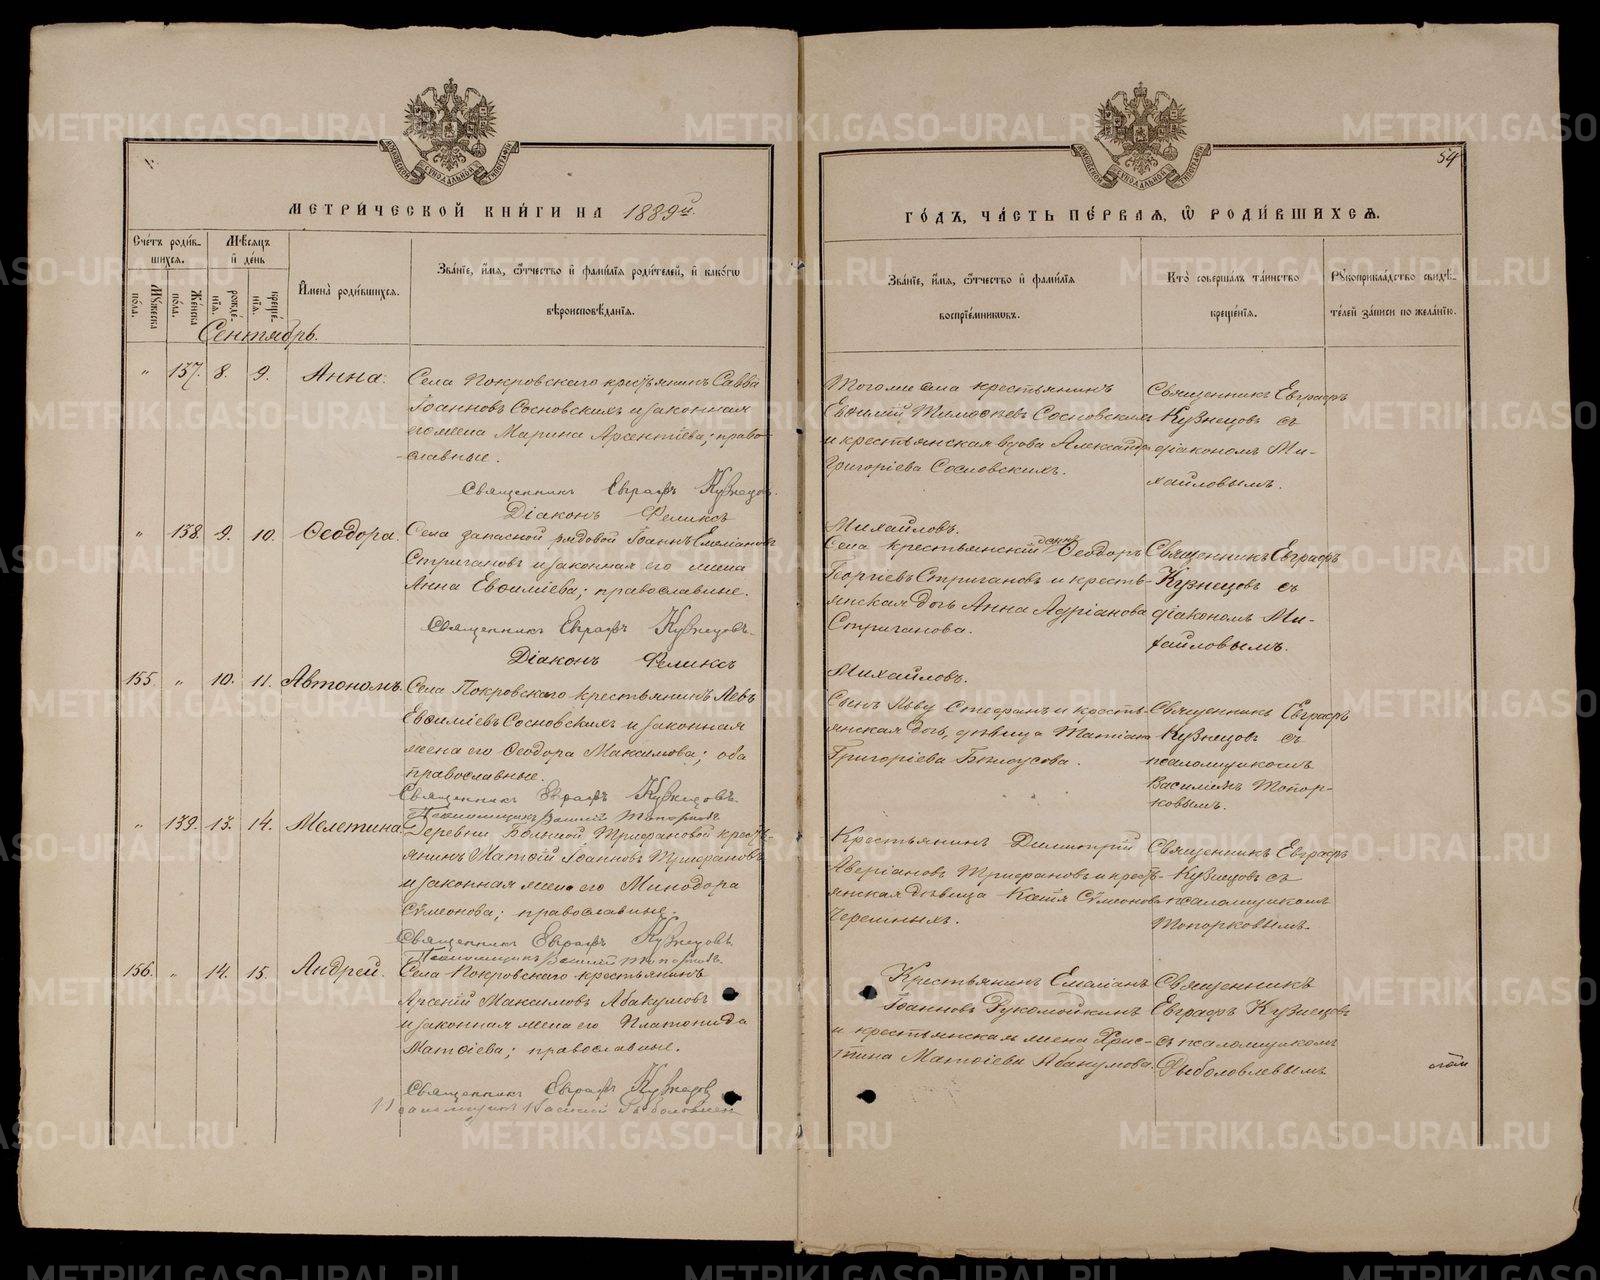 54
МЕТРИ́ЧЕСКОЙ КНИ́ГИ НА 1889й.
ГО́ДЪ, ЧА́СТЬ ПЕ́РВАЯ, Ѡ РОДИ́ВШИХСѦ.
Сче́тъ роди́в-
шихся.
Мꙋ́жеска по́ла.
Же́нска по́ла.
Мѣ́сяцъ
и҆ де́нь
рожде́нїя.
креще́нїя.
И҆мена̀ роди́вшихся.
Зва́нїе, и҆́мя, ѻ҆́тчество и҆ фами́лїя роди́телей, и҆ како́гѡ
вѣроисповѣ́данїя.
Зва́нїе, и҆́мя, ѻ҆́тчество и҆ фами́лїя
воспрїе́мникѡвъ.
Кто̀ соверша́лъ та́инство
креще́нїя.
Рꙋкоприкла́дство свидѣ́-
телей за́писи по жела́нїю.
Сентябрь.
" 137. 8. 9. Анна.
Села Покровскаго крестьянинъ Савва
Іоанновъ Сосновскихъ и законная
его жена Марина Арсентіева; право-
славные.
Священникъ Евграфъ Кузнецовъ.
Діаконъ Феликсъ
Тогоже села крестьянинъ
Евѳимій Тимоѳеевъ Сосновскихъ
и крестьянская вдова Александра
Григоріева Сосновскихъ.
Священникъ Евграфъ
Кузнецовъ съ
діакономъ Ми-
хайловымъ.
Михайловъ.
" 138. 9. 10. Ѳеодора.
Села запасной рядовой Іоаннъ Емеліановъ
Стригановъ и законная его жена
Анна Евѳиміева; православные.
Священникъ Евграфъ Кузнецовъ.
Діаконъ Феликсъ
Села крестьянскій сынъ Ѳеодоръ
Георгіевъ Стригановъ и кресть-
янская дочь Анна Адріанова
Стриганова.
Священникъ Евграфъ
Кузнецовъ съ
діакономъ Ми-
хайловымъ.
Михайловъ.
155. " 10. 11. Автономъ.
Села Покровскаго крестьянинъ Левъ
Евѳиміевъ Сосновскихъ и законная
жена его Ѳеодора Максимова; оба
православные.
Священникъ Евграфъ Кузнецовъ.
Псаломщикъ Василій Топорковъ
Сынъ Льву Стефанъ и кресть-
янская дочь, дѣвица Татіана
Григоріева Бѣлоусова.
Священникъ Евграфъ
Кузнецовъ съ
псаломщикомъ
Василіемъ Топор-
ковымъ.
" 139. 13. 14. Мелетина.
Деревни Большой Трифановой кресть-
янинъ Матѳій Іоанновъ Трифановъ
и законная жена его Минодора
Сѵмеонова; православные.
Священникъ Евграфъ Кузнецовъ
Псаломщикъ Василій Топорковъ.
Крестьянинъ Димитрій
Аверіановъ Трифановъ и кресть-
янская дѣвица Катя Сѵмеонова
Черемныхъ.
Священникъ Евграфъ
Кузнецовъ съ
псаломщикомъ
Топорковымъ.
156. " 14. 15. Андрей.
Села Покровскаго крестьянинъ
Арсеній Максимовъ Абакумовъ
и законная жена его Платонида
Матѳіева; православные.
Священникъ Евграфъ Кузнецов
Псаломщикъ Василій Рыболовлев
Крестьянинъ Емеліанъ
Іоанновъ Рукомойкинъ
и крестьянская жена Хрис-
тина Матѳіева Абакумова.
Священникъ
Евграфъ Кузнецовъ
съ псаломщикомъ
Рыболовлевымъ
METRIKI.GASO-URAL.RU